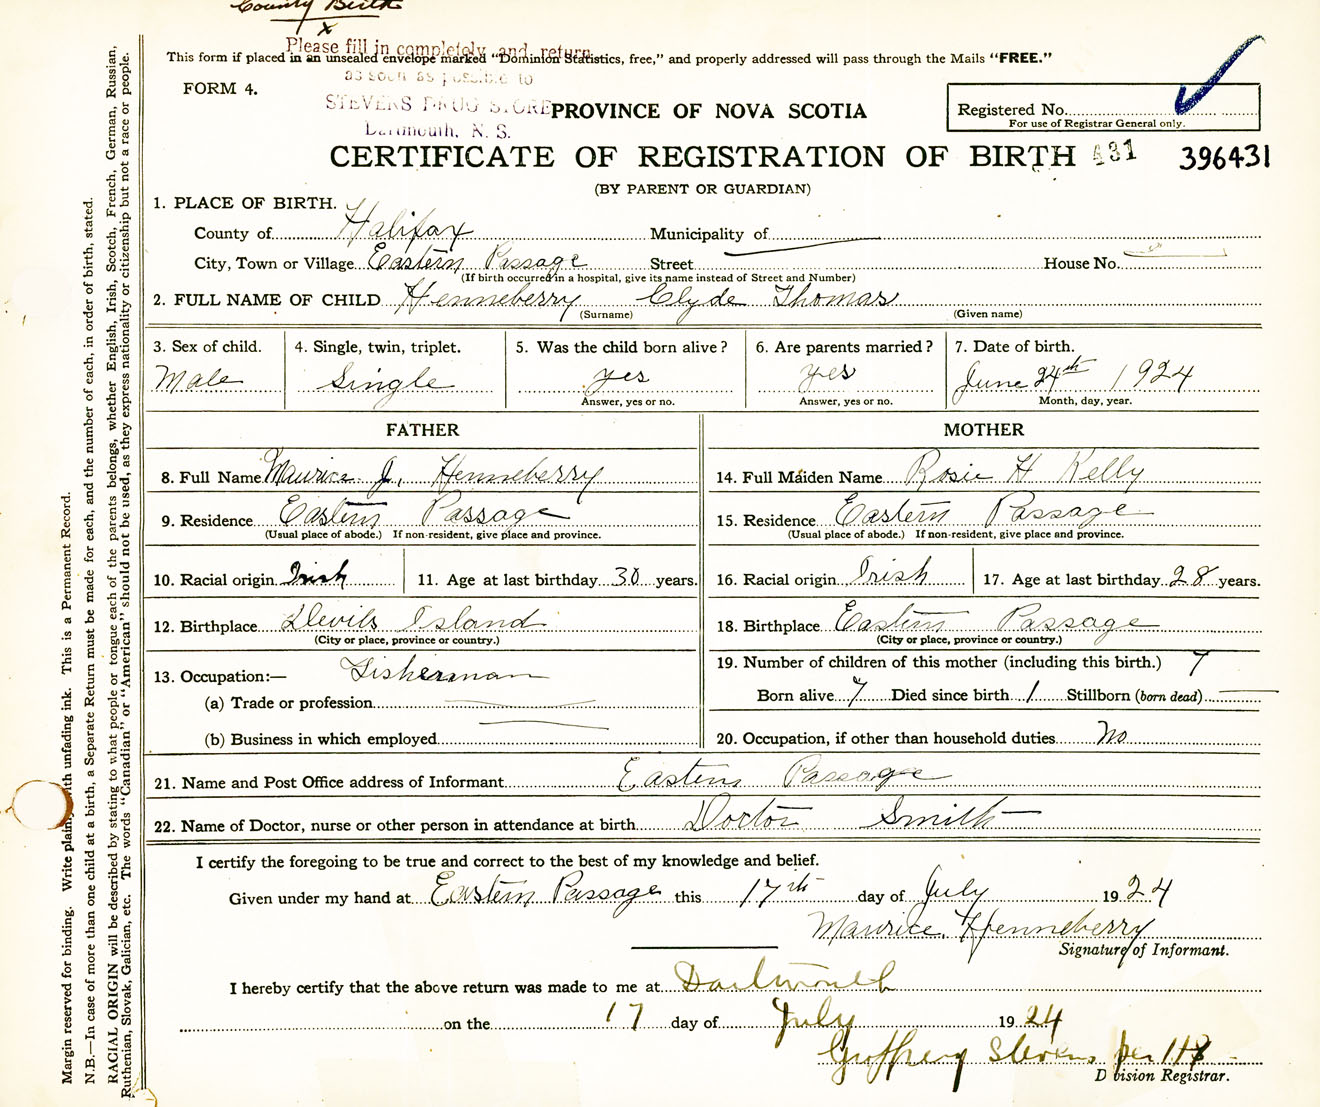 County Birth
x
Please fill in completely and return
This form if placed in an unsealed envelope marked "Dominion Statistics, free," and properly addressed will pass through the Mails "FREE."
as soon as possible to
FORM 4.
STEVENS DRUG STORE
PROVINCE OF NOVA SCOTIA
Registered No.
For use of Registrar General only.
Dartmouth, N. S.
CERTIFICATE OF REGISTRATION OF BIRTH 431 396431
(BY PARENT OR GUARDIAN)
1. PLACE OF BIRTH.
County of Halifax Municipality of
City, Town or Village Eastern Passage Street House No.
(If birth occurred in a hospital, give its name instead of Street and Number)
2. FULL NAME OF CHILD Henneberry Clyde Thomas
(Surname) (Given name)
3. Sex of child. 4. Single, twin, triplet. 5. Was the child born alive? 6. Are parents married? 7. Date of birth.
Male Single yes yes June 24th 1924
Answer, yes or no. Answer, yes or no. Month, day, year.
FATHER MOTHER
8. Full Name Maurice J. Henneberry 14. Full Maiden Name Rosie H Kelly
9. Residence Eastern Passage 15. Residence Eastern Passage
(Usual place of abode.) If non-resident, give place and province. (Usual place of abode.) If non-resident, give place and province.
10. Racial origin Irish 11. Age at last birthday 30 years. 16. Racial origin Irish 17. Age at last birthday 28 years.
12. Birthplace Devils Island 18. Birthplace Eastern Passage
(City or place, province or country.) (City or place, province or country.)
13. Occupation:— Fisherman 19. Number of children of this mother (including this birth.) 7
(a) Trade or profession Born alive 7 Died since birth 1 Stillborn (born dead)
(b) Business in which employed 20. Occupation, if other than household duties No
21. Name and Post Office address of Informant Eastern Passage
22. Name of Doctor, nurse or other person in attendance at birth Doctor Smith
I certify the foregoing to be true and correct to the best of my knowledge and belief.
Given under my hand at Eastern Passage this 17th day of July 1924
Maurice Henneberry
Signature of Informant.
I hereby certify that the above return was made to me at Dartmouth
on the 17 day of July 1924
Geoffrey Stevens per
Division Registrar.
Margin reserved for binding. Write plainly with unfading ink. This is a Permanent Record.
N.B.—In case of more than one child at a birth, a Separate Return must be made for each, and the number of each, in order of birth, stated.
RACIAL ORIGIN will be described by stating to what people or tongue each of the parents belongs, whether English, Irish, Scotch, French, German, Russian,
Ruthenian, Slovak, Galician, etc. The words "Canadian" or "American" should not be used, as they express nationality or citizenship but not a race or people.